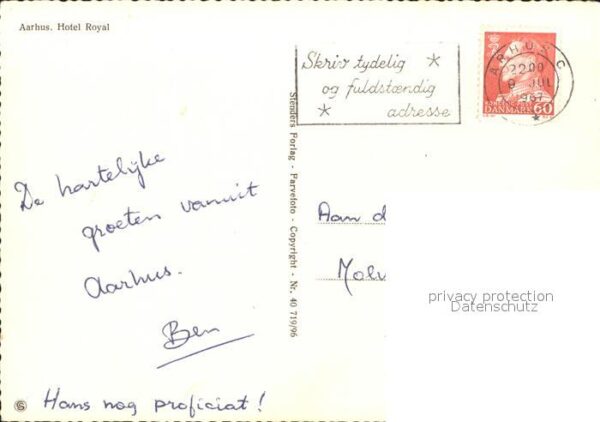 Aarhus. Hotel Royal
Skriv tydelig
og fuldstændig
adresse
AARHUS C
22.00
9 JUL
1967
DANMARK 60
De hartelijke
groeten vanuit
Aarhus.
Ben
Hans nog proficiat!
Stenders Forlag - Farvefoto - Copyright - Nr. 40 719/96
Aan d
Molv
privacy protection
Datenschutz